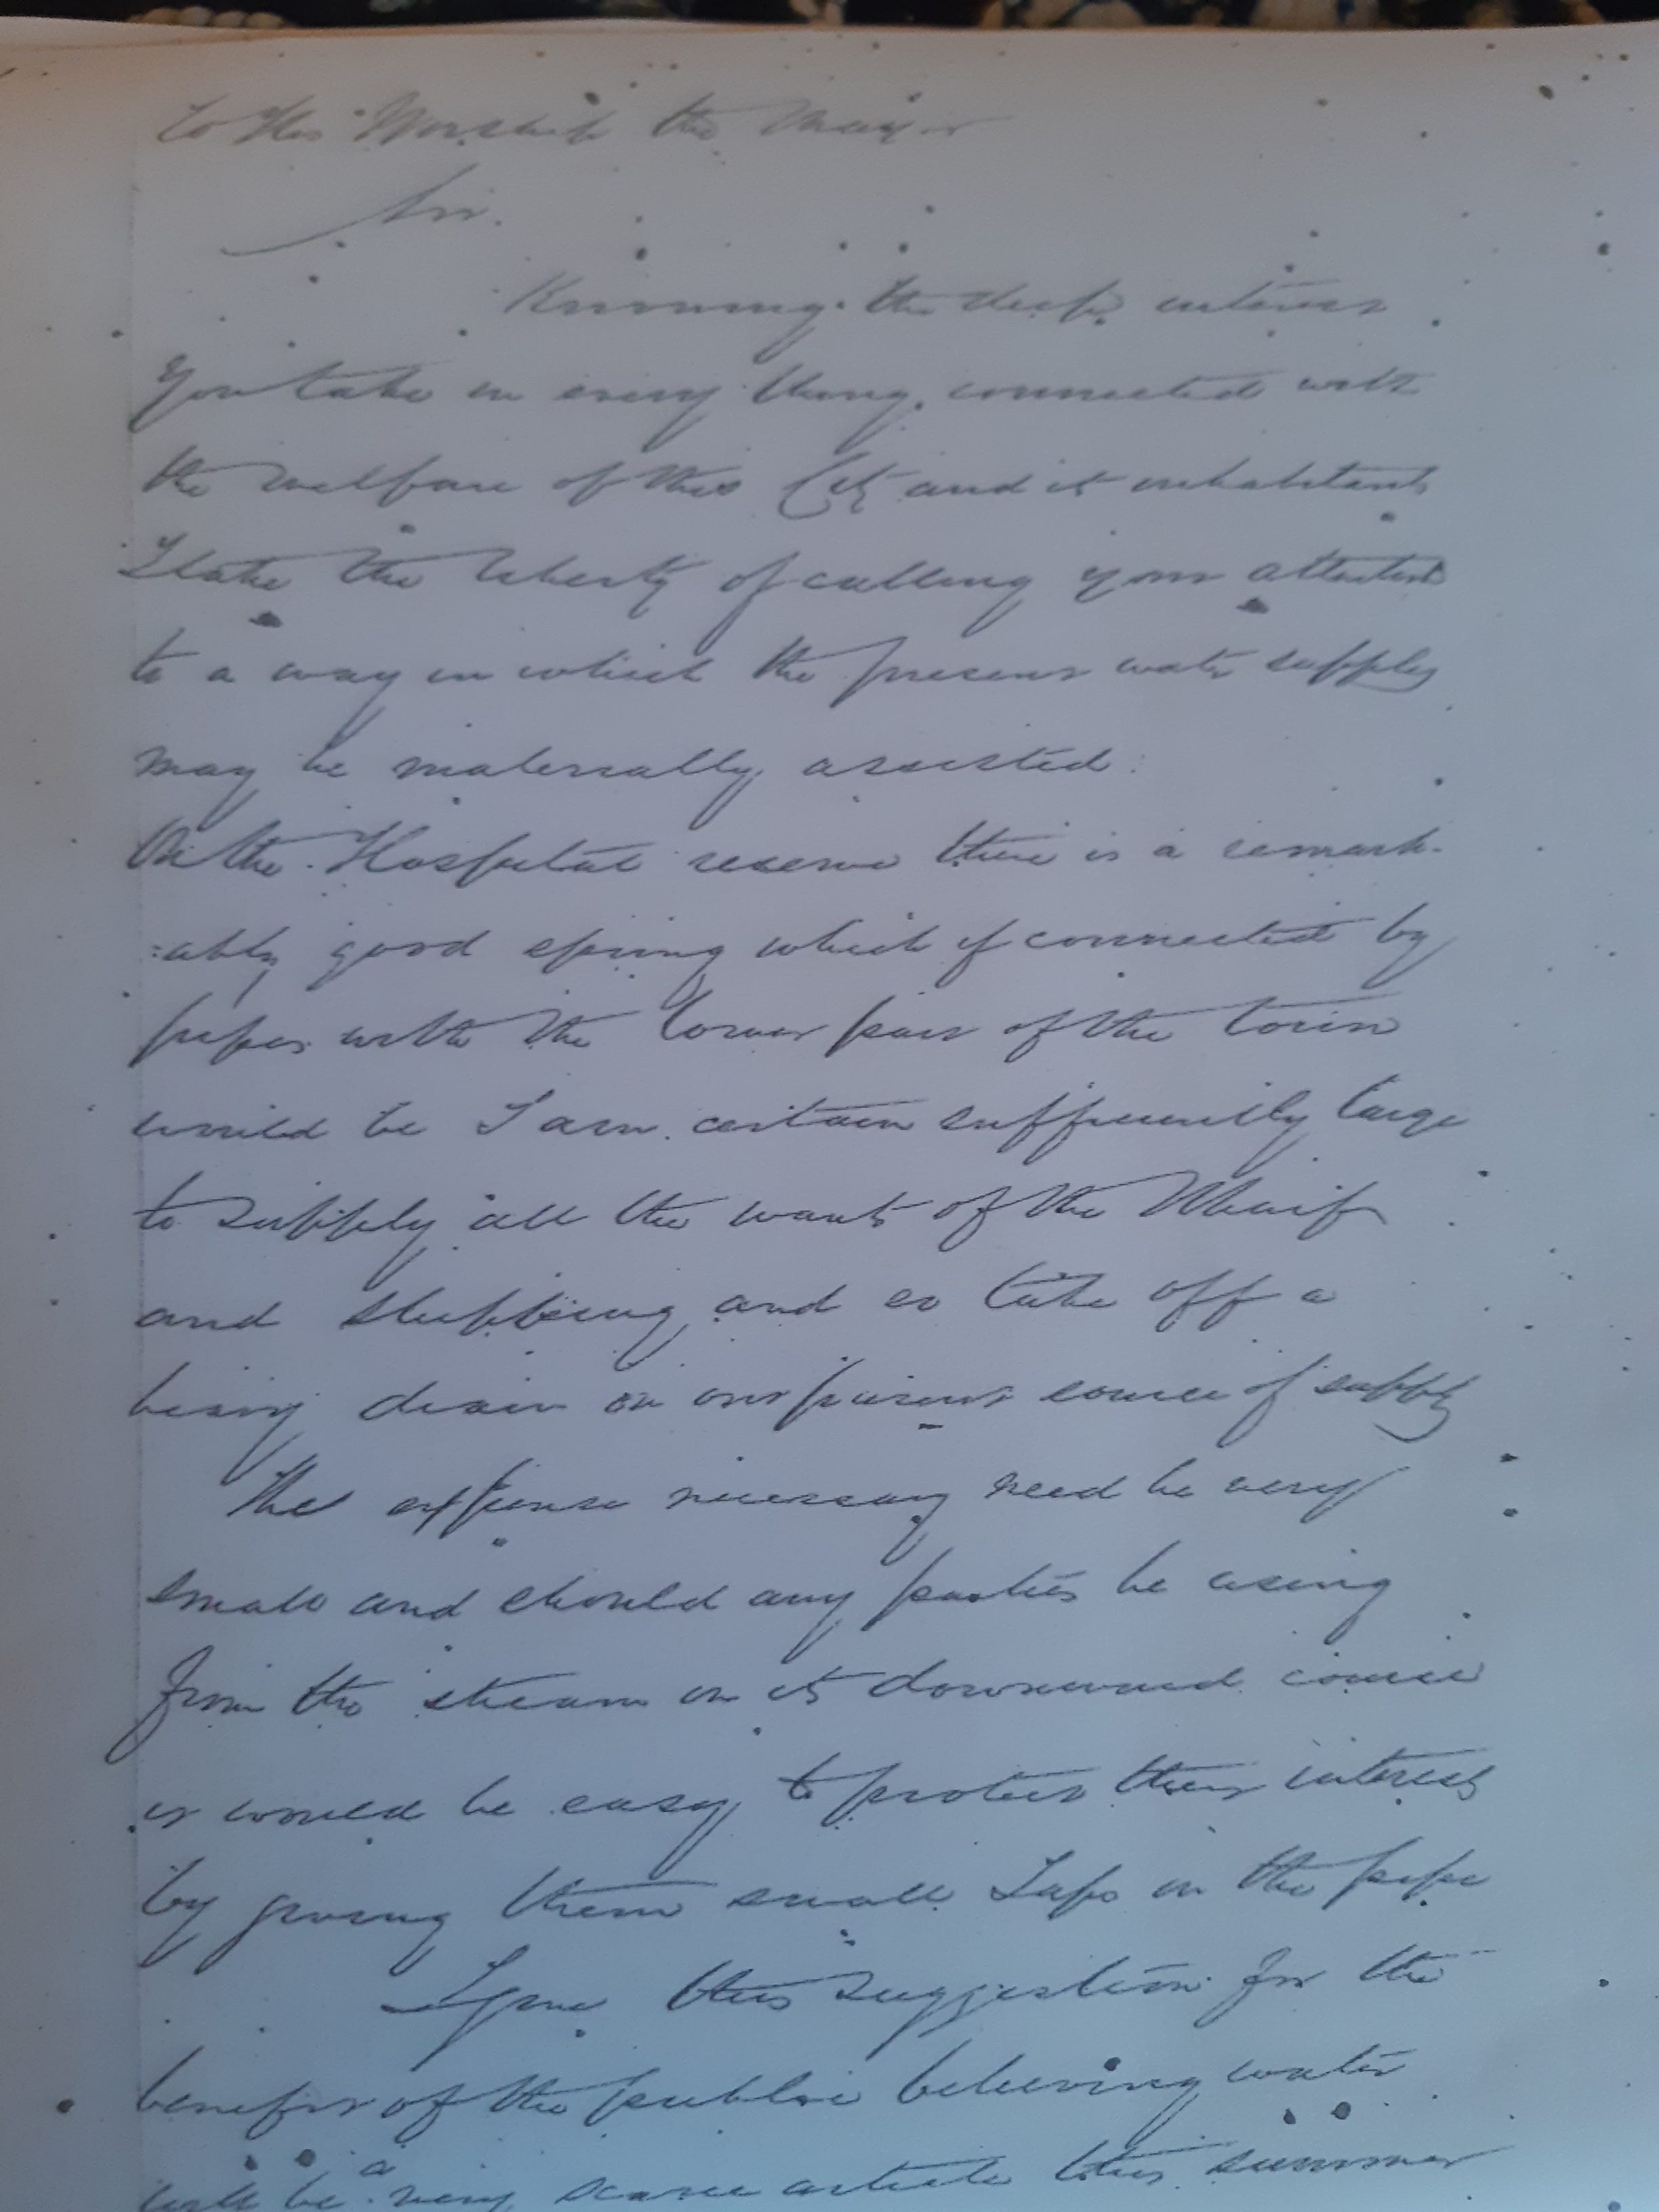 To His Worship the Mayor
Sir.
Knowing the deep interest
You take in every thing connected with
the welfare of this City and its inhabitants
I take the liberty of calling your attention
to a way in which the present water supply
may be materially assisted.
On the Hospital reserve there is a remark-
=ably good spring which if connected by
pipes with the lower part of the town
would be I am certain sufficiently large
to supply all the wants of the Wharf
and shipping and so take off a
heavy drain on our present source of supply
The expense necessary need be very
small and should any parties be using
from the stream in its downward course
it would be easy to protect their interests
by giving them small Taps in the pipe
I give this suggestion for the
benefit of the public believing water
will be a very scarce article this summer